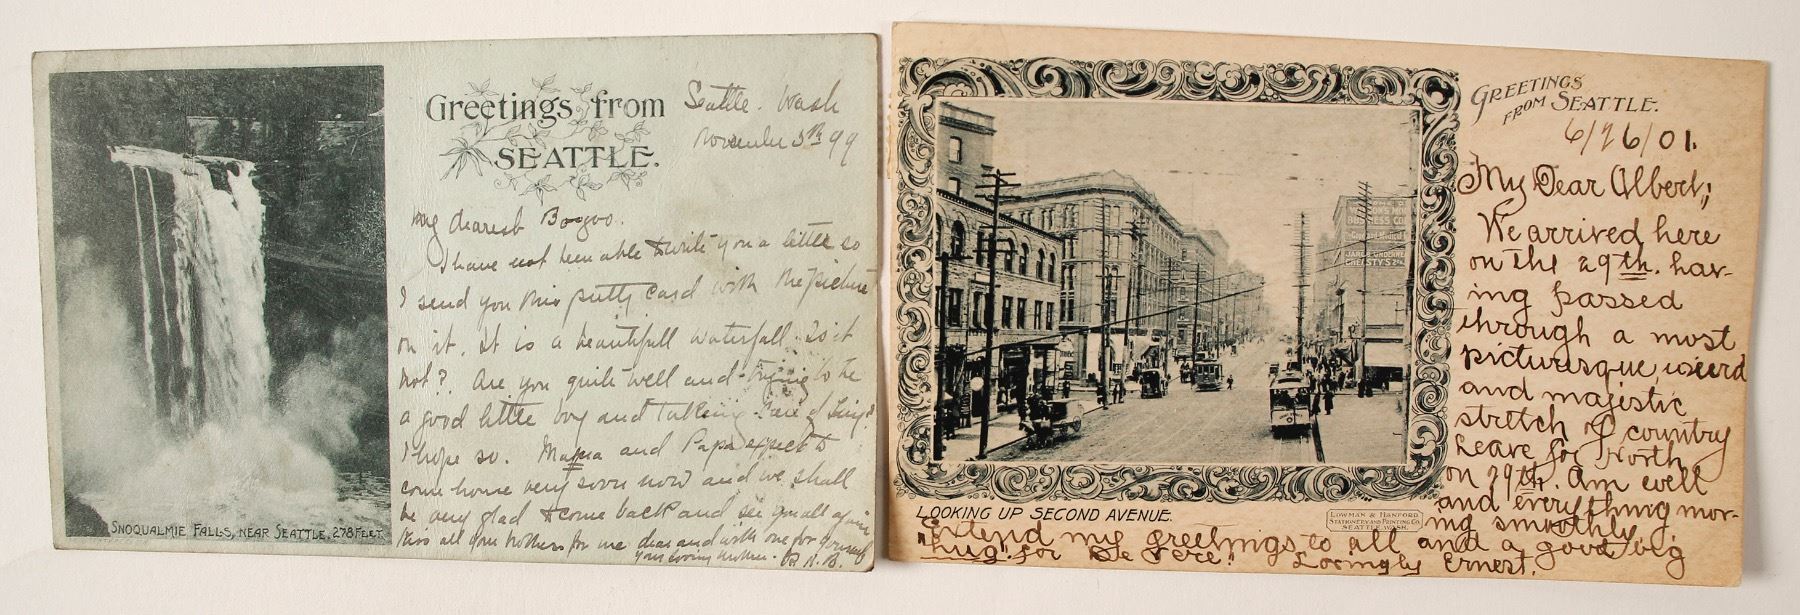 Greetings from
SEATTLE.
Seattle. Wash
November 5th 99
My dearest Bogoo.
I have not been able to write you a little so
I send you this pretty card with the picture
on it. It is a beautifull waterfall. Is it
not? Are you quite well and trying to be
a good little boy and taking care of
I hope so. Mama and Papa expect to
come home very soon now and we shall
be very glad to come back and see you all again
Kiss all your brothers for me dear and with one for yourself
your loving mother.
SNOQUALMIE FALLS, NEAR SEATTLE, 278 FEET.
GREETINGS
FROM SEATTLE.
6/26/01.
My Dear Albert;
We arrived here
on the 29th. hav-
ing passed
through a most
picturesque, weird
and majestic
stretch of country
Leave for North
on 29th. Am well
and everything mov-
ing smoothly.
Extend my greetings to all and a good big
"hug" for De Vere! Lovingly Ernest.
LOOKING UP SECOND AVENUE.
LOWMAN & HANFORD
STATIONERY AND PRINTING CO.
SEATTLE, WASH.